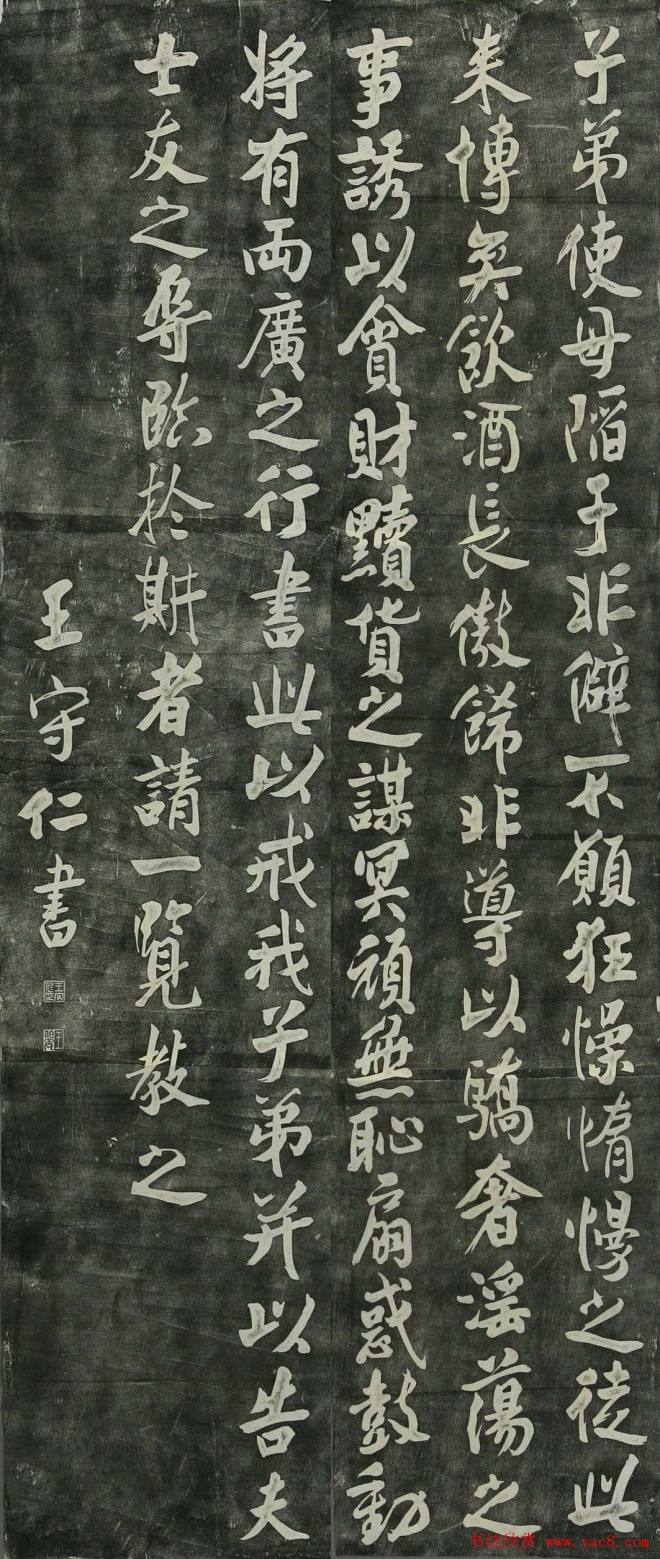 子弟使毋陷于非僻不願狂懆惰慢之徒此
来博奕飲酒長傲飾非導以驕奢淫蕩之
事誘以貪財黷貨之謀冥頑無恥扇惑鼓動
将有兩廣之行書此以戒我子弟并以告夫
士友之辱臨於斯者請一覽教之
王守仁書
书法欣赏 www.yac8.com